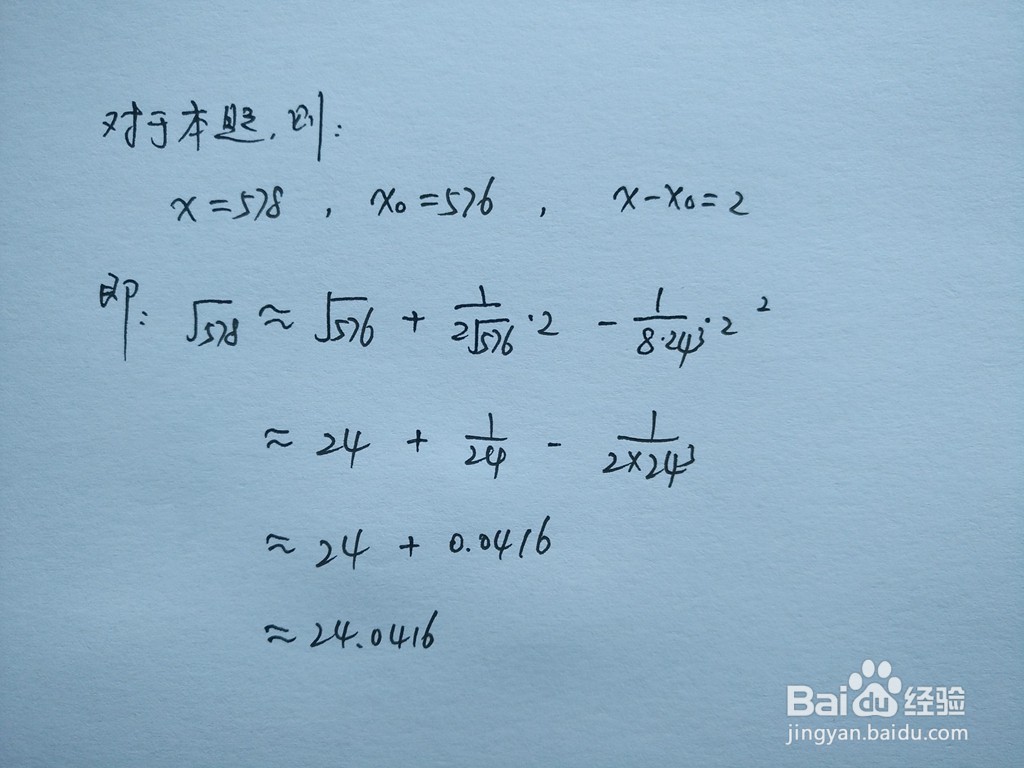 对于本题,则:
x=578 , x₀=576 , x-x₀=2
即: √578 ≈ √576 + 1/(2√576)·2 - 1/(8·24³)·2²
≈ 24 + 1/24 - 1/(2×24³)
≈ 24 + 0.0416
≈ 24.0416
Baidu经验
jingyan.baidu.com